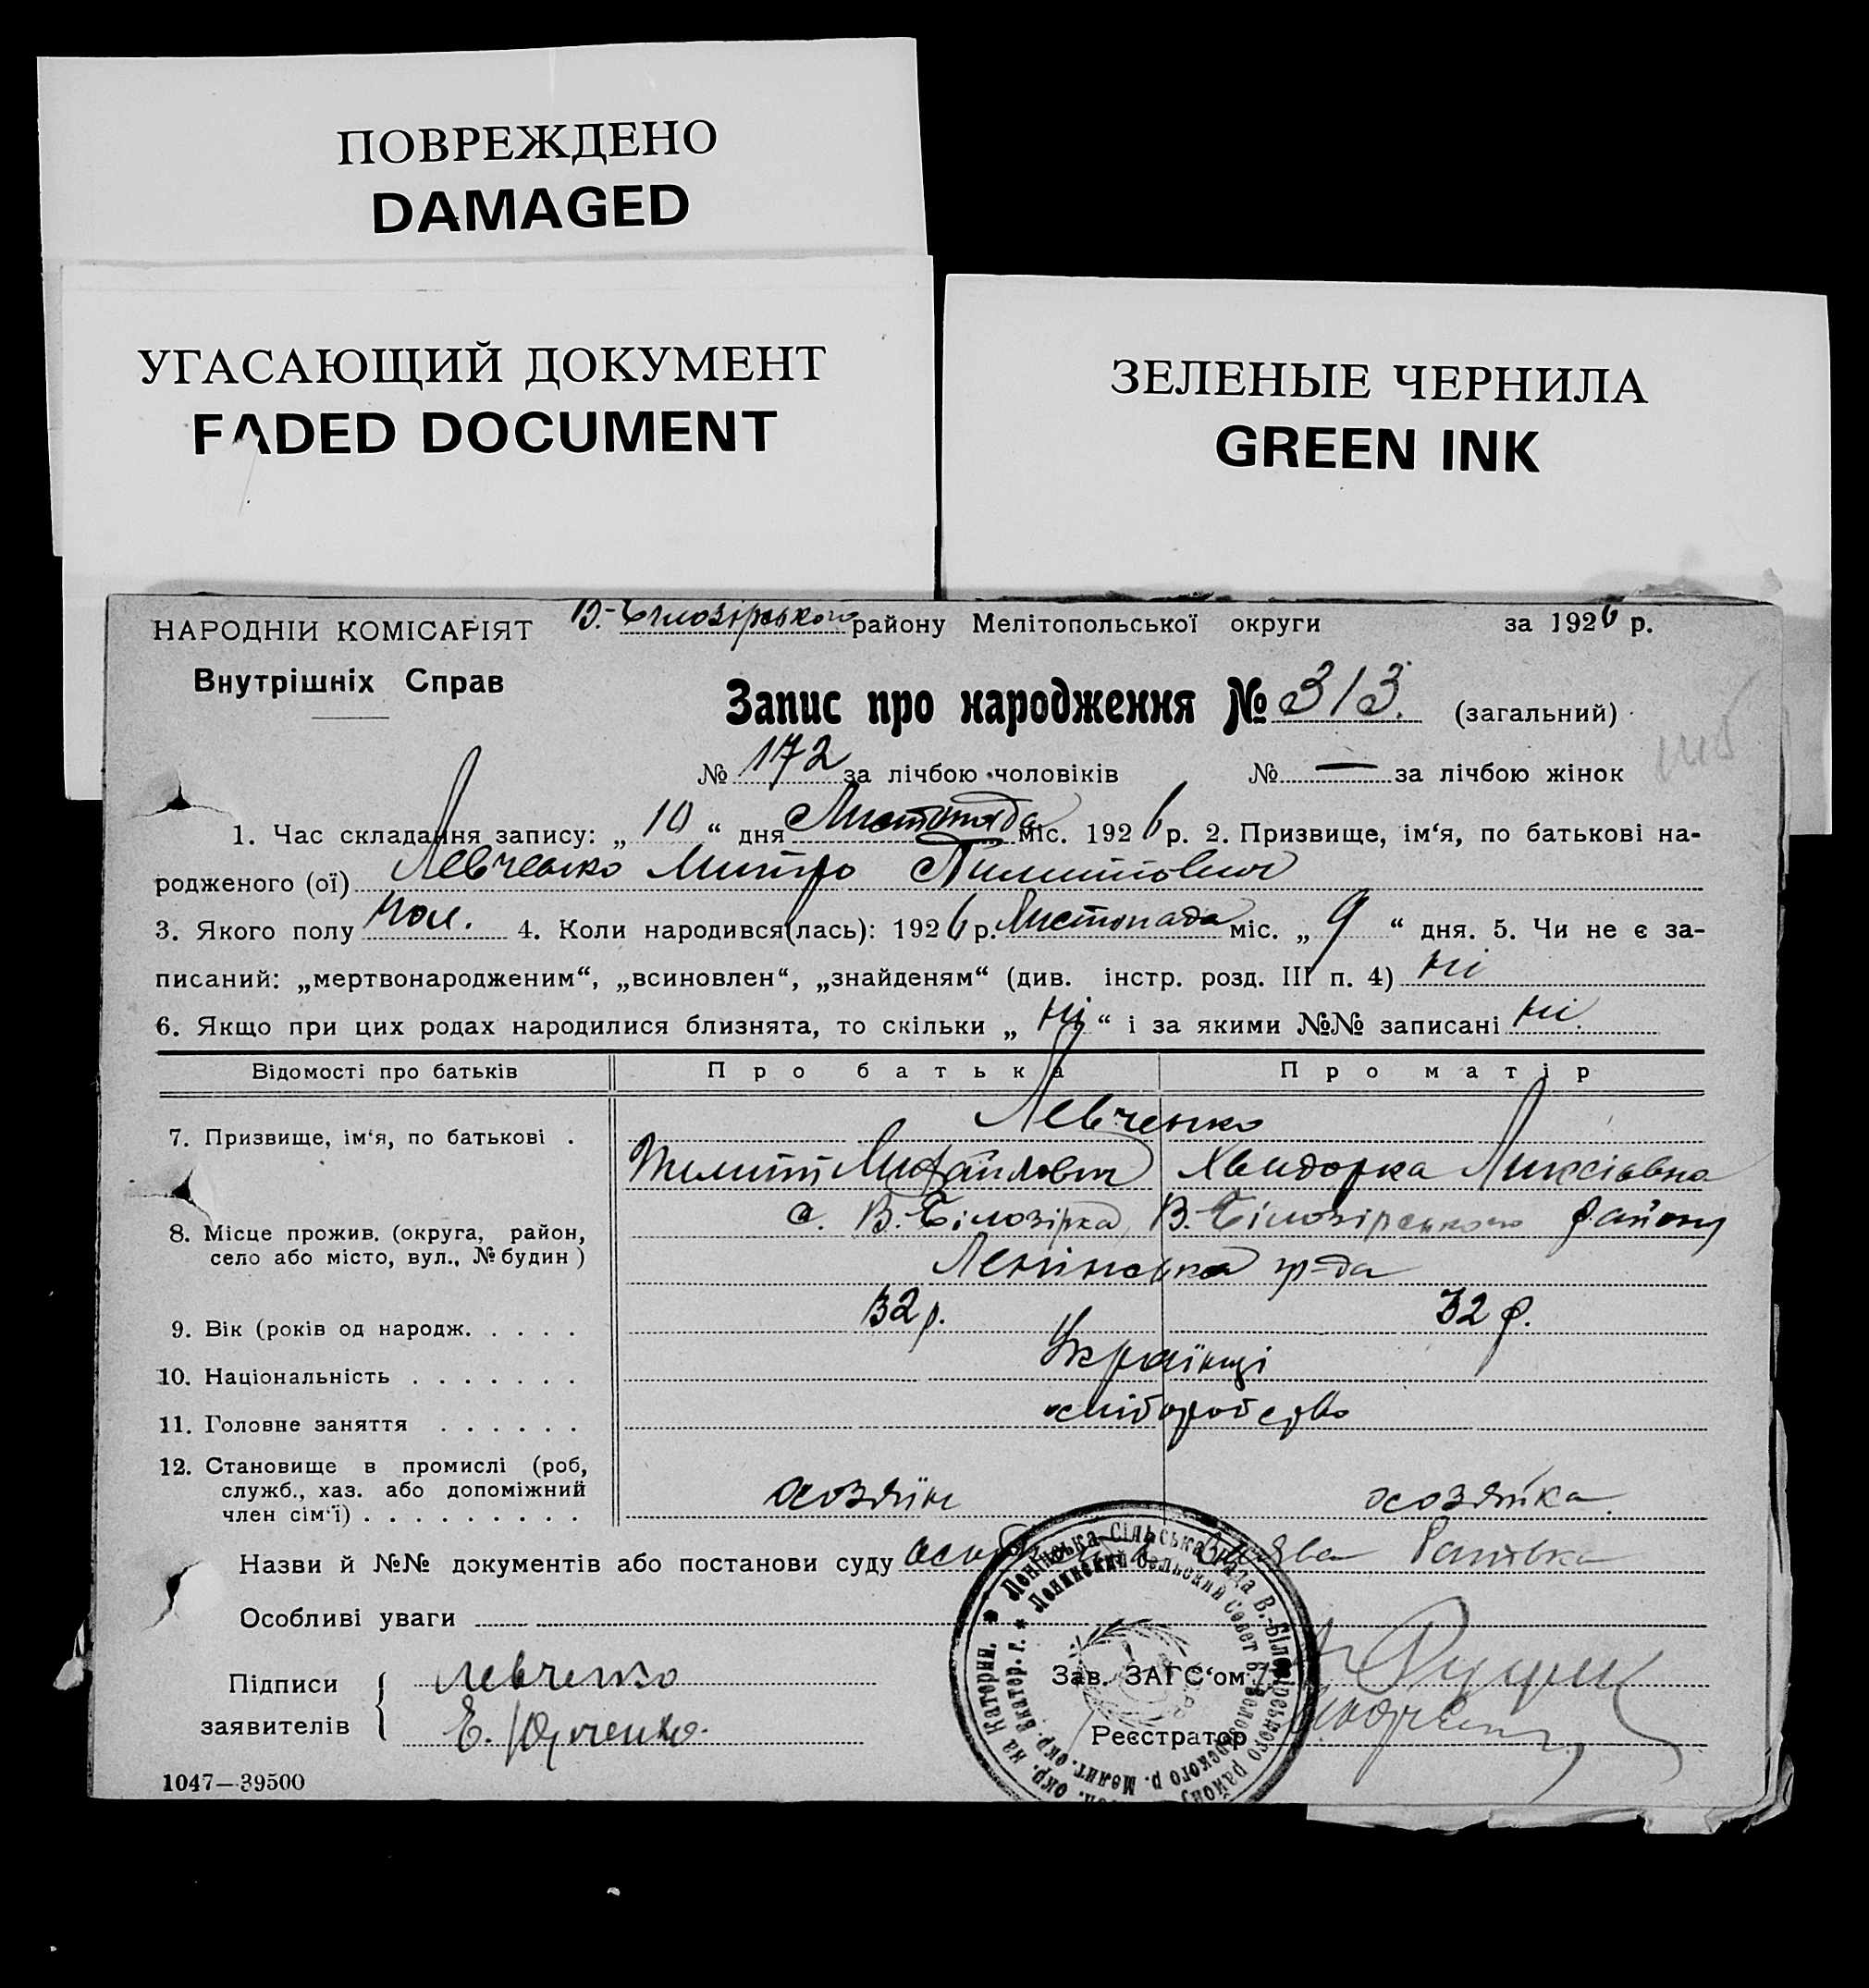 ПОВРЕЖДЕНО
DAMAGED
УГАСАЮЩИЙ ДОКУМЕНТ
FADED DOCUMENT
ЗЕЛЕНЫЕ ЧЕРНИЛА
GREEN INK
НАРОДНІЙ КОМІСАРІЯТ
Внутрішніх Справ
В.-Білозірського району Мелітопольської округи за 1926 р.
Запис про народження № 313. (загальний)
№ 172 за лічбою чоловіків № — за лічбою жінок
1. Час складання запису: „ 10 “ дня Листопада міс. 1926 р. 2. Призвище, ім‘я, по батькові на-
родженого (ої) Левченко Митро Пилипович
3. Якого полу чол. 4. Коли народився(лась): 1926 р. Листопада міс. „ 9 “ дня. 5. Чи не є за-
писаний: „мертвонародженим“, „всиновлен“, „знайденям“ (див. інстр. розд. III п. 4) ні
6. Якщо при цих родах народилися близнята, то скільки „ ні “ і за якими №№ записані ні.
Відомості про батьків Про батька Про матір
7. Призвище, ім‘я, по батькові . Левченко
Пилип Михайлович
8. Місце прожив. (округа, район,
село або місто, вул., № будин ) с. В. Білозірка, В. Білозірського району
Ленінська
9. Вік (років од народж. . . . . 32 р. 32 р.
10. Національність . . . . . . . Українці
11. Головне заняття . . . . . . хліборобство
12. Становище в промислі (роб,
служб., хаз. або допоміжний
член сім‘ї) . . . . . . . . . хозяїн хозяйка.
Назви й №№ документів або постанови суду
Особливі уваги
Підписи
заявителів
Левченко
Е. Юрченко
Зав. ЗАГС‘ом
Реєстратор
Ленінська Сільська Рада В. Білозірського району
Ленинский Сельский Совет В. Белозерского р. Мелит. окр. Екатер. г.
окр. на Катерин.
1047—39500